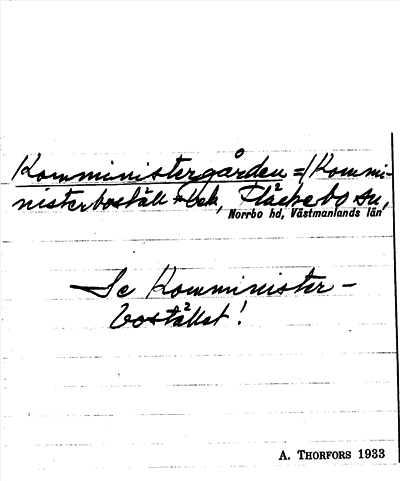 Kommunistergården =/Kommi-
nisterboställ =bek, Fläckebo sn,
Norrbo hd, Västmanlands län
Se Komminister-
bostället!
A. THORFORS 1933